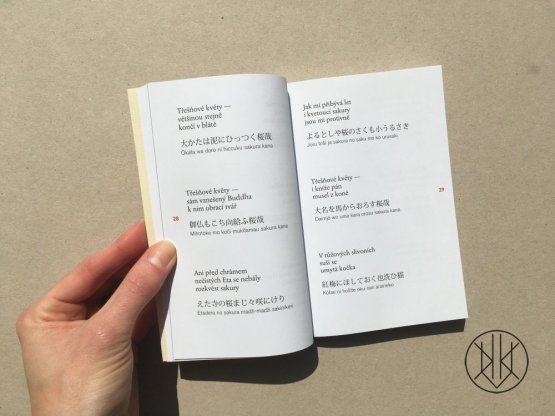 Třešňové květy —
většinou stejně
končí v blátě
大かたは泥にひつつく桜哉
Ókata wa doro ni hiccuku sakura kana
Třešňové květy —
sám vznešený Buddha
k nim obrací tvář
28
御仏もこち向給ふ桜哉
Mihotoke mo koči mukitamau sakura kana
Ani před chrámem
nečistých Eta se nebály
rozkvést sakury
えた寺の桜まじ々咲にけり
Etadera no sakura madži-madži sakinikeri
Jak mi přibývá let
i kvetoucí sakury
jsou mi protivné
よるとしや桜のさくも小うるさき
Joru toši ja sakura no saku mo ko urusaki
Třešňové květy —
i kníže pán
musel z koně
29
大名を馬からおろす桜哉
Daimjó wo uma kara orosu sakura kana
V růžových slivoních
suší se
umytá kočka
紅梅にほしておく也洗ひ猫
Kóbai ni hošite oku nari araineko